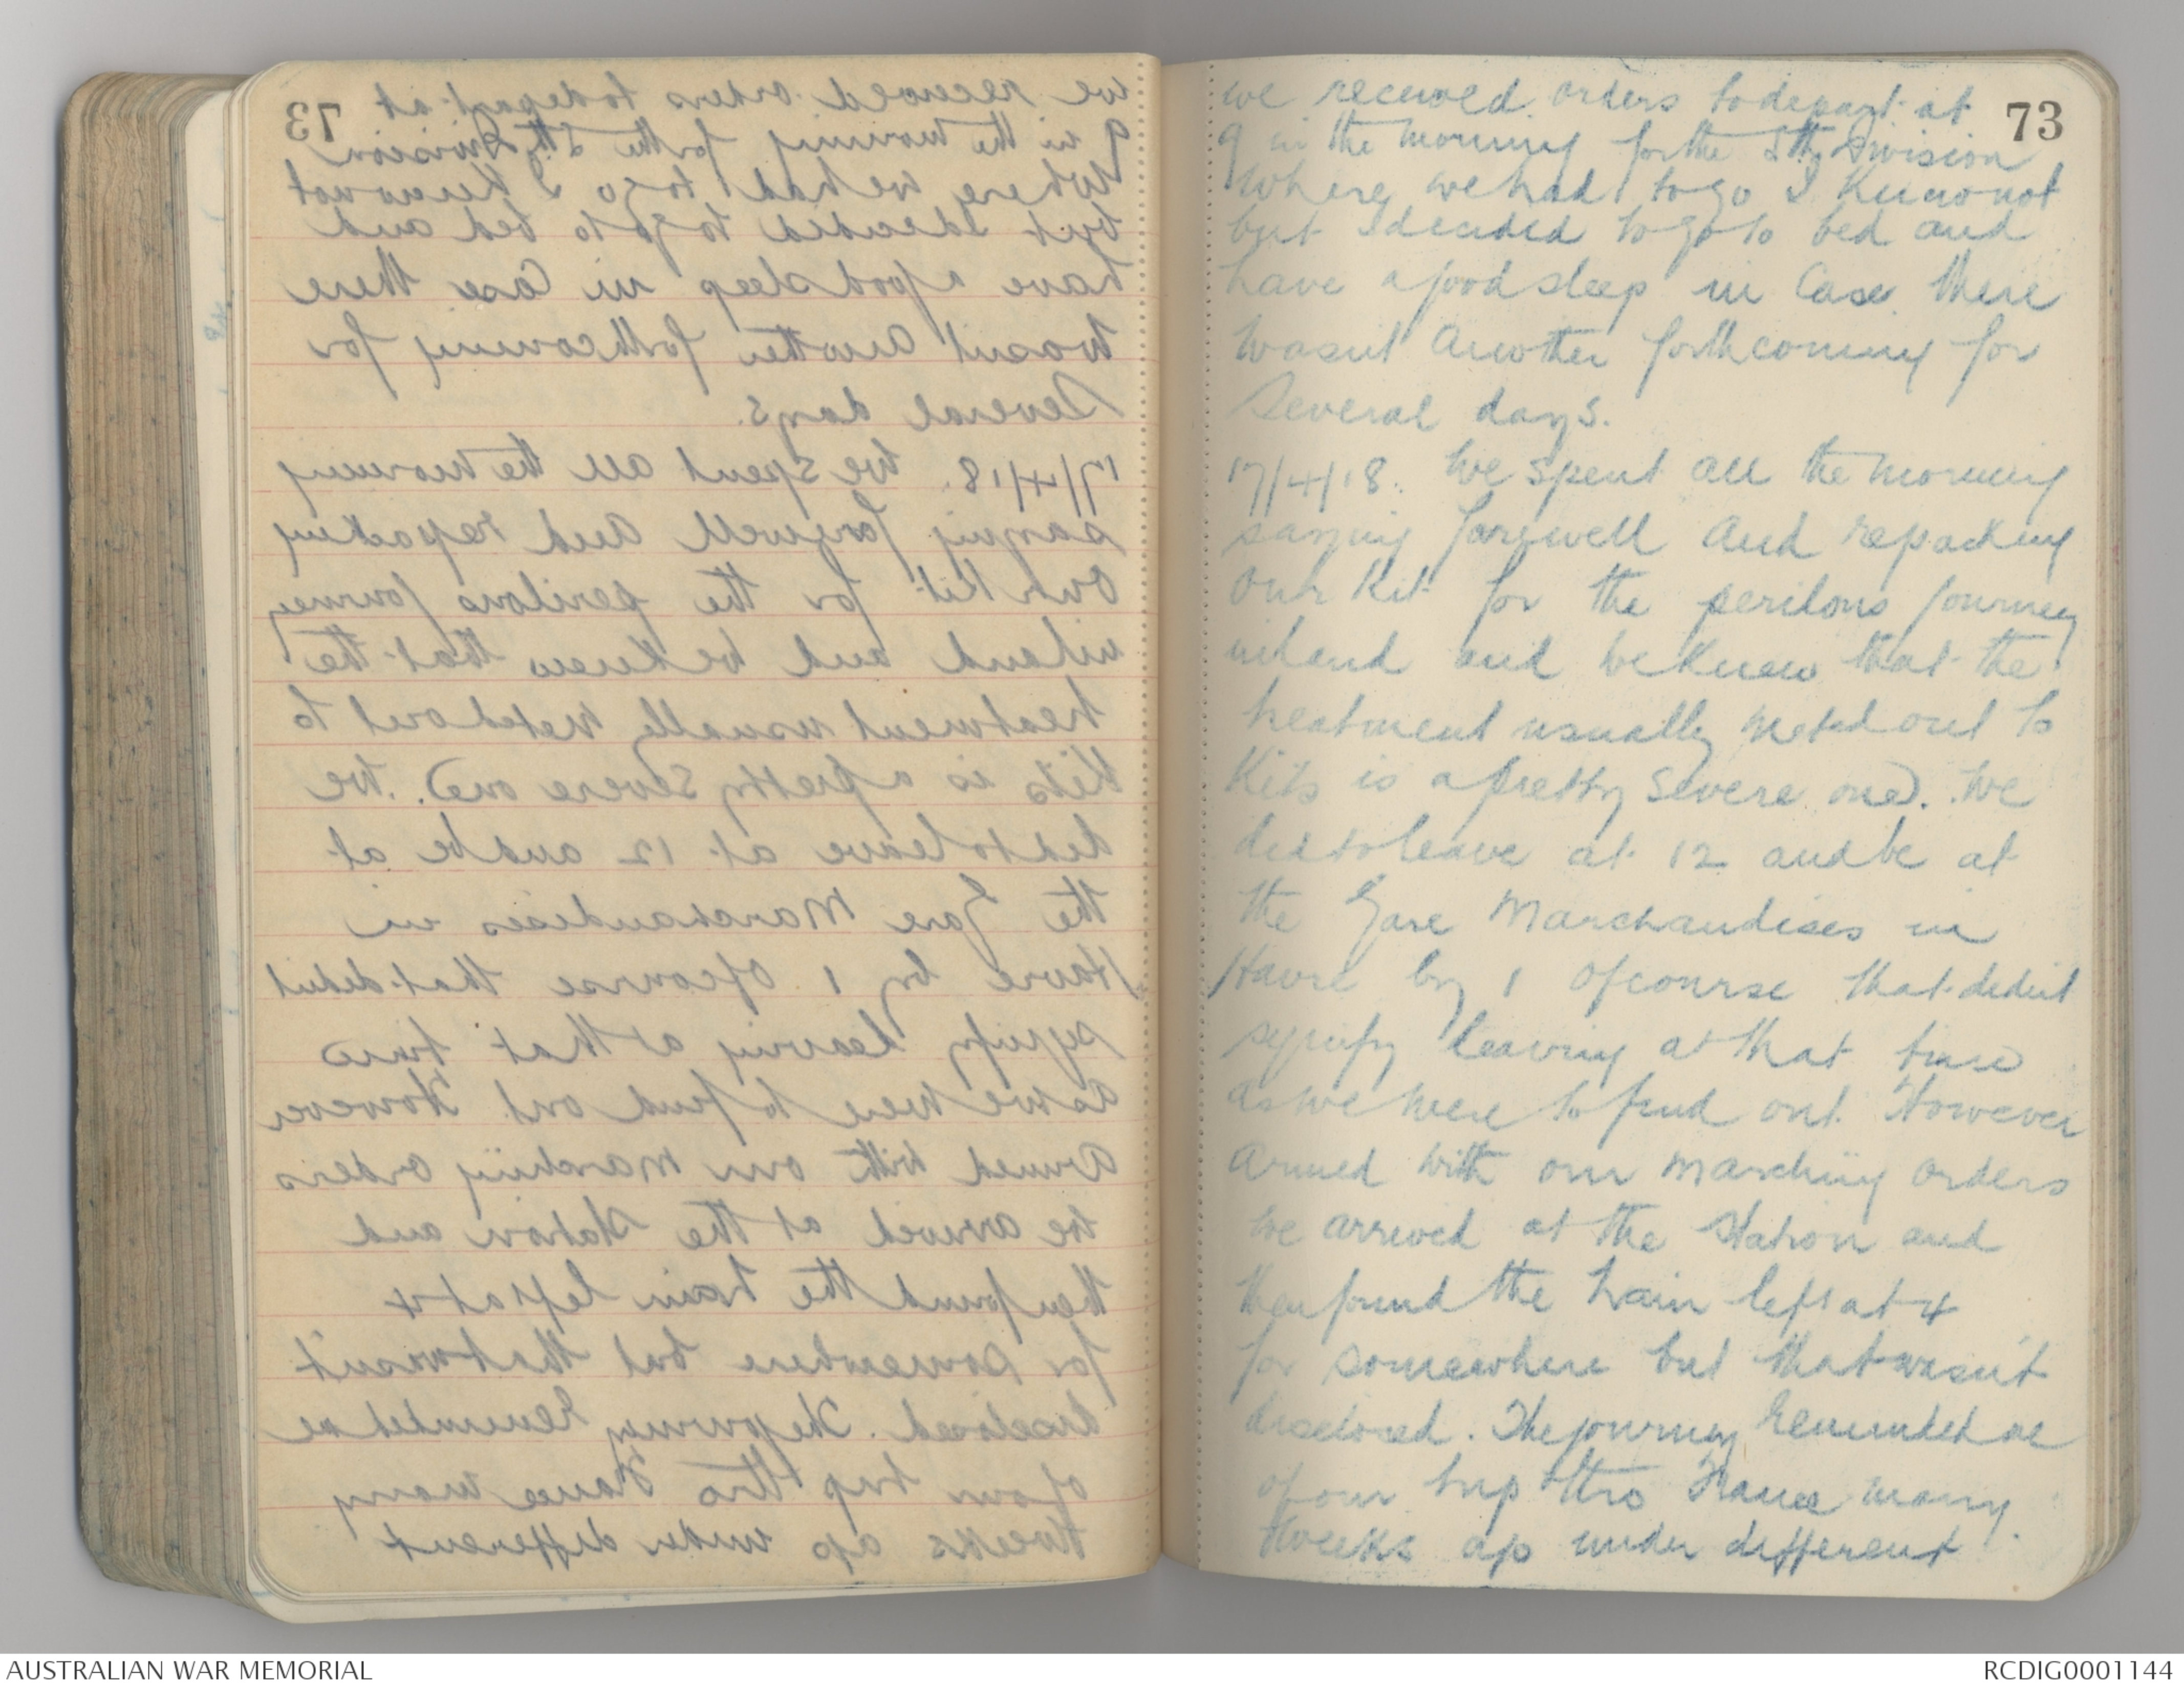 73
we received orders to depart at
9 in the morning for the 5th Division
Where we had to go I know not
but I decided to go to bed and
have a good sleep in Case there
wasnt another forthcoming for
Several days.
17/4/18. We spent all the morning
saying farewell and repacking
our Kit for the perilous journey
inland and we Knew that the
treatment usually meted out to
Kits is a pretty severe one. We
had to leave at 12 and be at
the Gare Marchandises in
Havre by 1 Of course that didnt
signify leaving at that time
as we were to find out. However
Armed with our marching orders
we arrived at the Station and
then found the train left at 4
for somewhere but that wasnt
disclosed. The journey reminded me
of our trip thro France many
weeks ago under different
AUSTRALIAN WAR MEMORIAL
RCDIG0001144